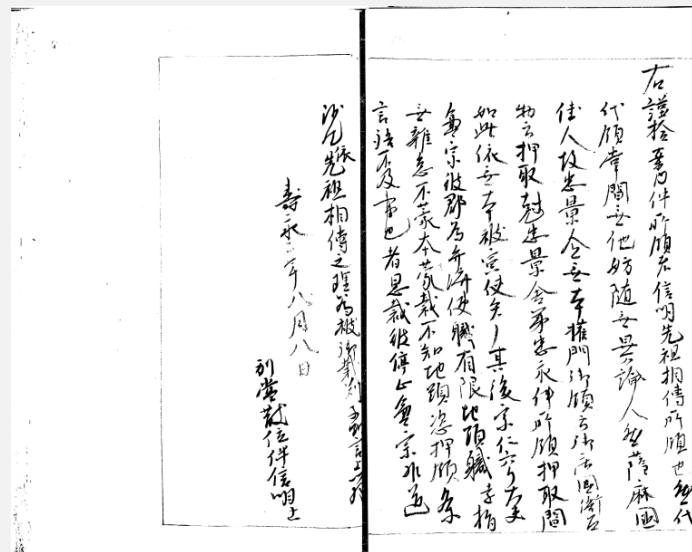 右謹捡舊同件所領者信明先祖相傳所領也然代
代領掌間無他妨随無異論人然薩麻國
住人故忠景令無本権門御領云御庄國衙公
物云押取尅忠景舎弟忠永件所領押取間
如此依無本被宣使矣其後宗仁六大夫
兼宗彼郡為弁済使職有限地頭職
無雜怠不蒙本蒙裁不知地頭恣押領条
言語不及也者恩裁被停止兼宗非道
沙乙依先祖相傳之理為被御裁判言上如
壽永二年八月八日
別當散位伴信明上